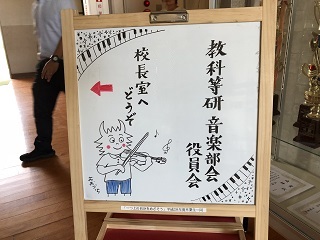 教科等研 音楽部会
役員会
校長室へ
どうぞ